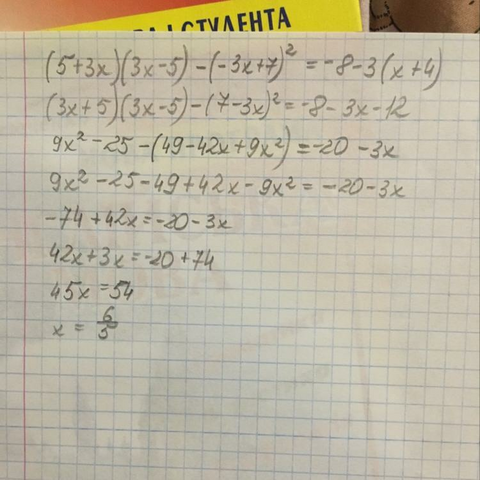 СТУДЕНТА
(5+3x)(3x-5)-(-3x+7)² =-8-3(x+4)
(3x+5)(3x-5)-(7-3x)²=-8-3x-12
9x²-25-(49-42x+9x²)=-20-3x
9x²-25-49+42x-9x²=-20-3x
-74+42x=-20-3x
42x+3x=-20+74
45x=54
x = 6/5